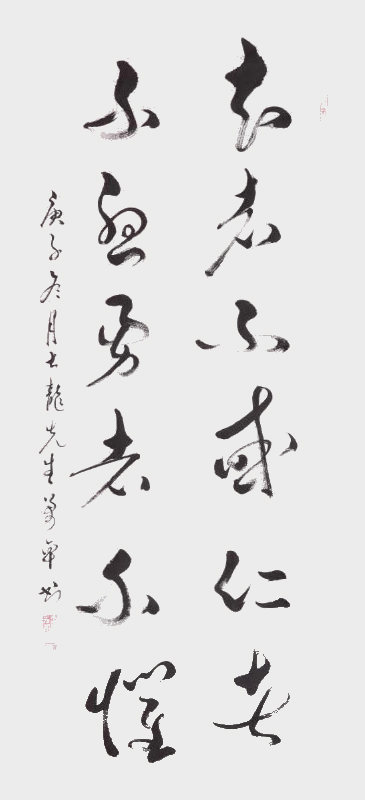 知者不惑仁者
不憂勇者不懼
庚子冬月士龍先生